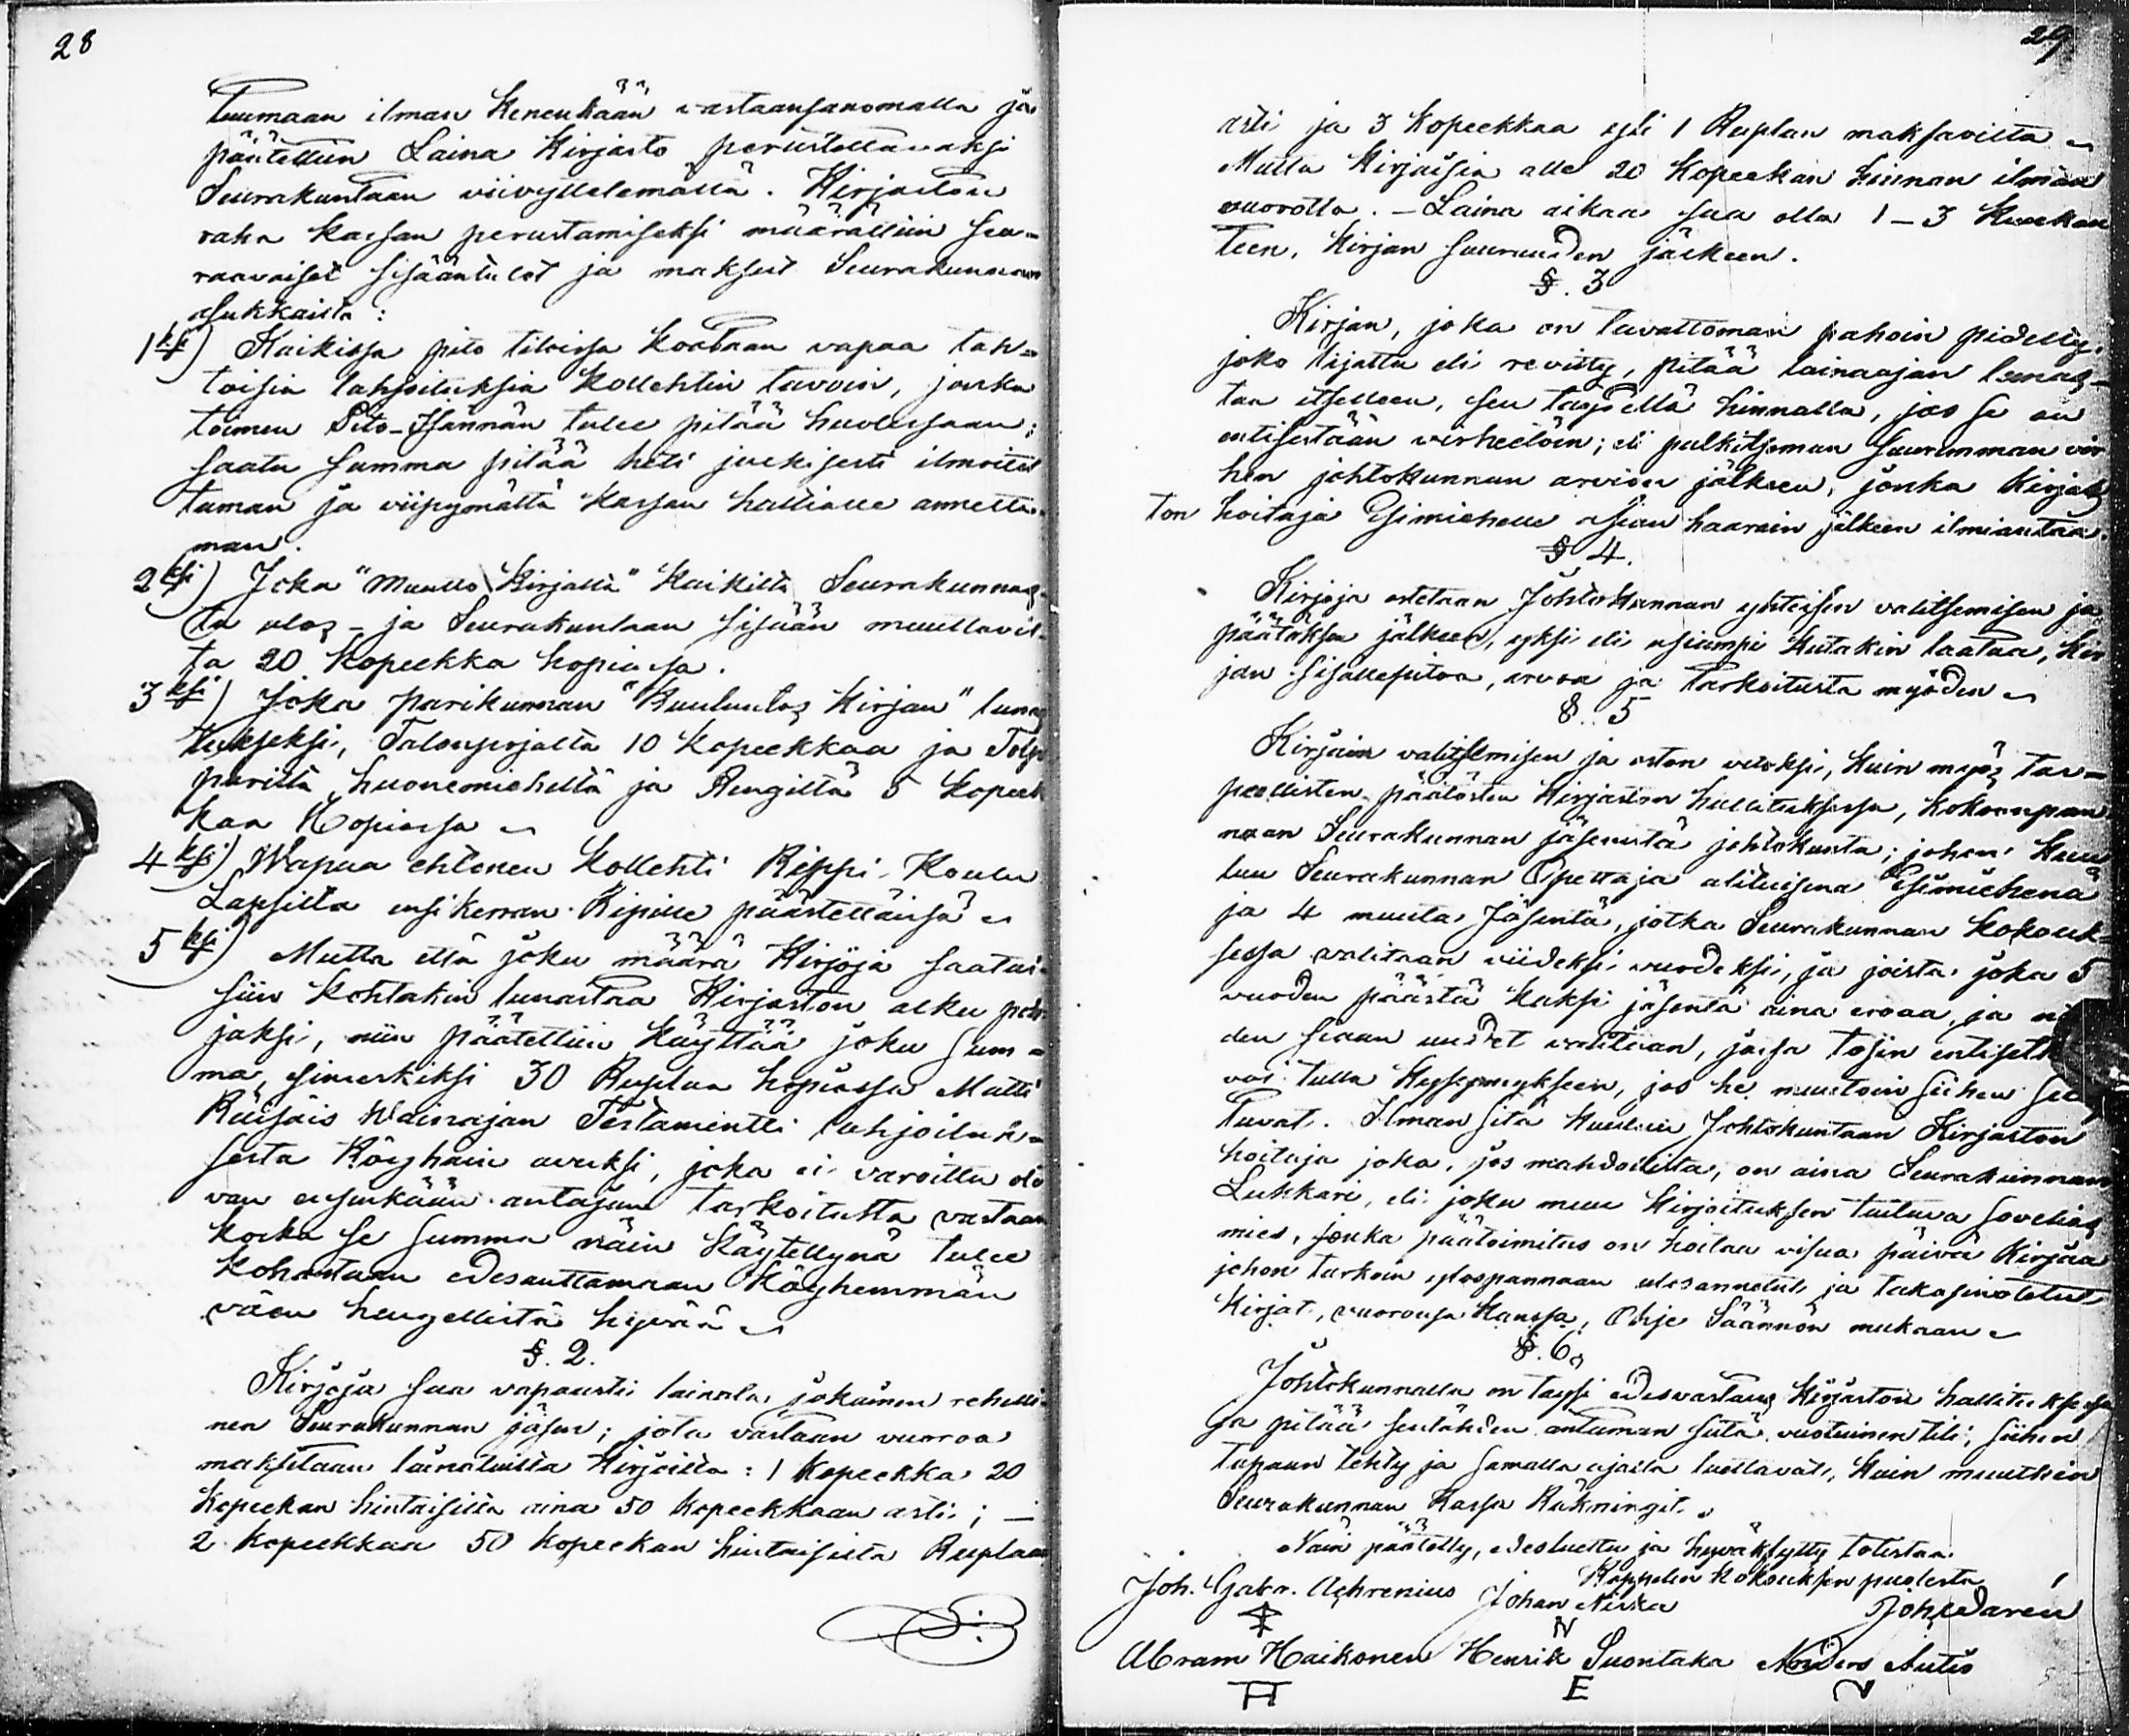 28
tuumaan ilman kenenkään vastaansanomalla ja
päätettiin Laina Kirjasto perustettavaksi
Seurakuntaan viivyttelemättä. Kirjaston
raha kassan perustamiseksi määrättiin seu-
raavaiset sisääntulot ja maksut Seurakunnan
asukkaista:
1ksi) Kaikissa pito tiloissa kootaan vapaa tah-
toisia lahjoituksia Kollehtin tavoin, jonka
toimen Pito-Isännän tulee pitää huolessaan;
saatu summa pitää heti julkisesti ilmoitet
taman ja viipymättä kassan haltialle annetta-
man.
2ksi) Joka "Muutto Kirjalta" kaikilta Seurakunnas-
ta ulos- ja Seurakuntaan sisään muuttavil-
ta 20 kopeekka hopiassa.
3ksi) Joka parikunnan "Kuulutos Kirjan" lunas
tukseksi, Talonpojalta 10 kopeekkaa ja Torp
parilta, huonemieheltä ja Rengiltä 5 kopeek
kaa Hopiassa
4ksi) Wapaa ehtonen Kollehti Rippi-Koulu
Lapsilta ensikerran Ripille päästettäissä
5ksi) Mutta että joku määrä Kirjoja saatai-
siin kohtakin lunastaa Kirjaston alku poh-
jaksi, niin päätettiin käyttää joku sum-
ma, esimerkiksi 30 Ruplaa hopiassa Matti
Räisäis Wainajan Testamentti lahjoituk-
sesta Köyhäin avuksi, joka ei varoittu ole
van ensinkään antajan tarkoitusta vastaan
koska se summa näin käytettynä tulee
kohastaan edesauttamaan Köyhemmän
väen hengellistä hyvää
§. 2.
Kirjoja saa vapaasti lainata jokainen rehelli-
nen Seurakunnan jäsen; jota vastaan vuoroa
maksetaan lainatuista Kirjoista: 1 kopeekka 20
kopeekan hintaisilta aina 50 kopeekkaan asti; —
2 kopeekkaa 50 kopeekan hintaisilta Ruplaan
29
asti ja 3 kopeekkaa yli 1 Ruplan maksavilta
Mutta Kirjaisia alle 20 kopeekan hinnan ilman
vuorotta. — Laina aikaa saa olla 1–3 Kuukau
teen, Kirjan suuruuden jälkeen.
§. 3
Kirjan, joka on tavattoman pahoin pidelty,
joko lijattu eli revitty, pitää lainaajan lunas-
taa itselleen, sen täydellä hinnalla, jos se on
entisestään virheetöin; eli palkitseman suuremman vir
hen johtokunnan arvion jälkeen, jonka Kirjas
ton hoitaja Esimiehelle asian haarain jälkeen ilmiantaa.
§ 4.
Kirjoja ostetaan Johtokunnan yhteisen valitsemisen ja
päätöksen jälkeen, yksi eli usiampi kutakin laatua, Kir
jan sisällepitoa, arvoa ja tarkoitusta myöden
§. 5
Kirjain valitsemisen ja oston vuoksi, kuin myös tar-
peellisten päätösten Kirjaston hallituksessa, kokoonpan
naan Seurakunnan jäsenistä johtokunta; johon kuu
luu Seurakunnan Opettaja alituisena Esimiehenä
ja 4 muuta Jäsentä, jotka Seurakunnan Kokouk-
sessa valitaan viideksi vuodeksi, ja joista joka 5
vuoden päästä kaksi jäsentä aina eroaa, ja
den siaan uudet valitaan, jossa tosin entiset
voi tulla kysymykseen, jos he muutoin siihen
tuvat. Ilman sitä kuuluu Johtokuntaan Kirjaston
hoitaja joka, jos mahdollista, on aina Seurakunnan
Lukkari, eli joku muu Kirjoituksen taitava sovelias
mies, jonka päätoimitus on hoitaa visua päivä Kirjaa
johon tarkoin ylospannaan ulosannetut ja takasinotetut
Kirjat, vuoronsa kanssa, Ohje Säännön mukaan
§. 6.
Johtokunnalla on täysi edesvastaus Kirjaston hallituksessa
ja pitää sentähden antaman siitä vuotuinen tili, siihen
tapaan tehty ja samalla ajalla luettavat, kuin muutkin
Seurakunnan Kassa Räkningit.
Näin päätetty, edesluettu ja hyväksytty totistaa.
Kappelin kokouksen puolesta
Joh. Gabr. Achrenius Johan Niska
Abram Haikonen Henrik Suontaka Anders Autio
H E